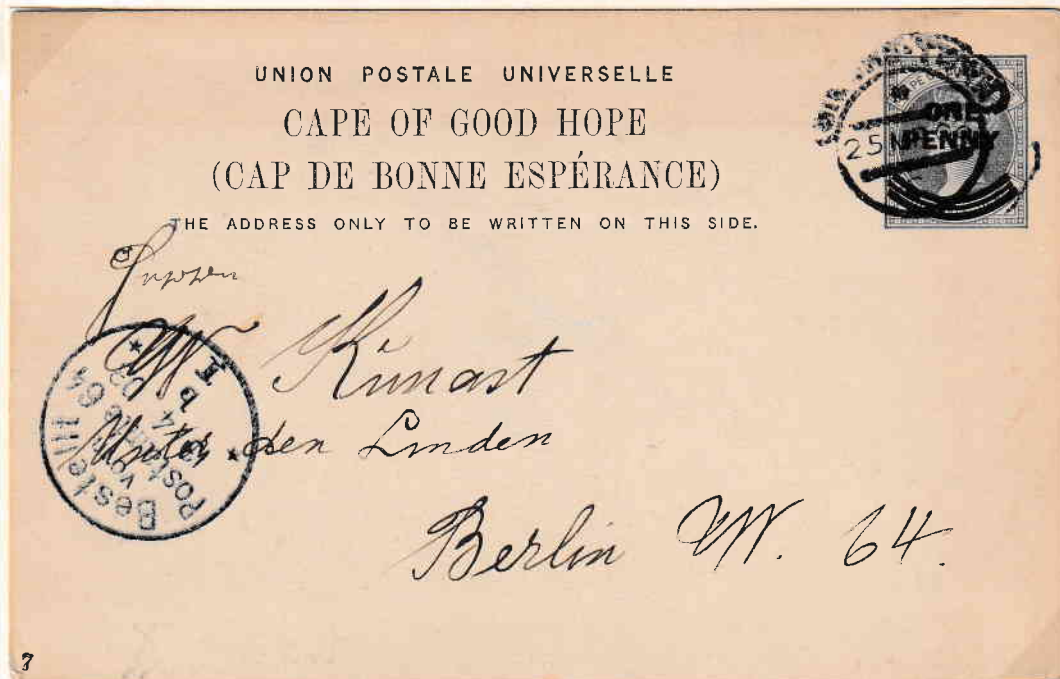 UNION POSTALE UNIVERSELLE
CAPE OF GOOD HOPE
(CAP DE BONNE ESPÉRANCE)
THE ADDRESS ONLY TO BE WRITTEN ON THIS SIDE.
ONE
PENNY
25
W Kunast
Unter den Linden
Berlin W. 64.
Bestellt
vom
Postamte 64
I
b
7